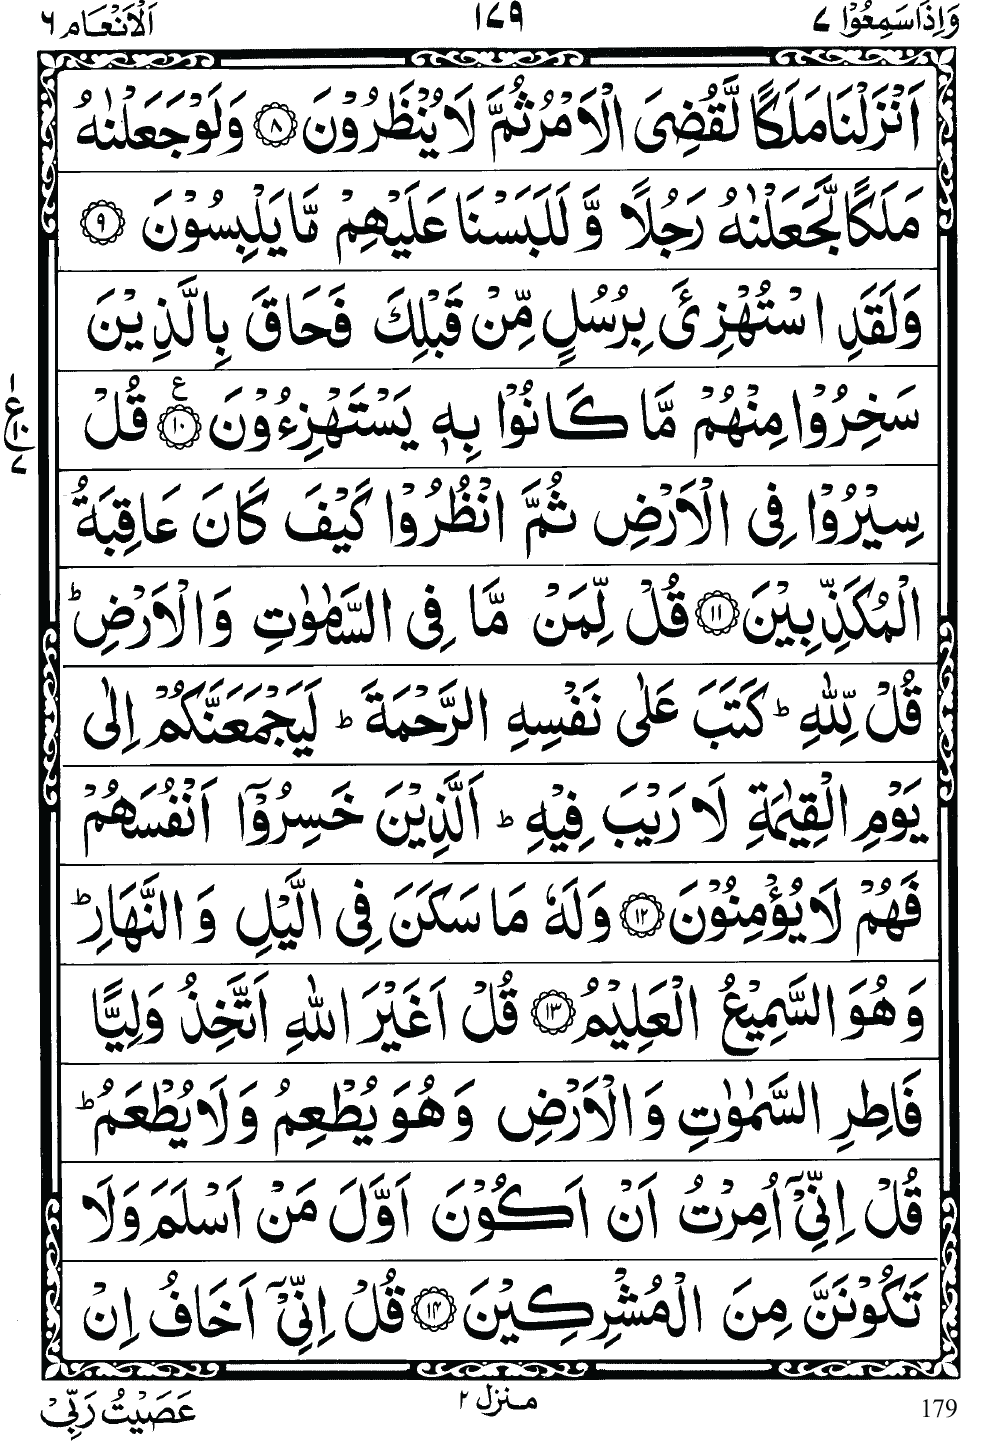 وَاِذَا سَمِعُوْا ٧
١٧٩
اَلْاَنْعَام ٦
اَنْزَلْنَا مَلَكًا لَّقُضِىَ الْاَمْرُ ثُمَّ لَا يُنْظَرُوْنَ ٨ وَلَوْ جَعَلْنٰهُ
مَلَكًا لَّجَعَلْنٰهُ رَجُلًا وَّ لَلَبَسْنَا عَلَيْهِمْ مَّا يَلْبِسُوْنَ ٩
وَلَقَدِ اسْتُهْزِئَ بِرُسُلٍ مِّنْ قَبْلِكَ فَحَاقَ بِالَّذِيْنَ
سَخِرُوْا مِنْهُمْ مَّا كَانُوْا بِهٖ يَسْتَهْزِءُوْنَ ١٠ ع قُلْ
١
ع
١٠
٧
سِيْرُوْا فِى الْاَرْضِ ثُمَّ انْظُرُوْا كَيْفَ كَانَ عَاقِبَةُ
الْمُكَذِّبِيْنَ ١١ قُلْ لِّمَنْ مَّا فِى السَّمٰوٰتِ وَالْاَرْضِ ؕ
قُلْ لِّلّٰهِ ؕ كَتَبَ عَلٰى نَفْسِهِ الرَّحْمَةَ ؕ لَيَجْمَعَنَّكُمْ اِلٰى
يَوْمِ الْقِيٰمَةِ لَا رَيْبَ فِيْهِ ؕ اَلَّذِيْنَ خَسِرُوْٓا اَنْفُسَهُمْ
فَهُمْ لَا يُؤْمِنُوْنَ ١٢ وَلَهٗ مَا سَكَنَ فِى الَّيْلِ وَالنَّهَارِ ؕ
وَهُوَ السَّمِيْعُ الْعَلِيْمُ ١٣ قُلْ اَغَيْرَ اللّٰهِ اَتَّخِذُ وَلِيًّا
فَاطِرِ السَّمٰوٰتِ وَالْاَرْضِ وَهُوَ يُطْعِمُ وَلَا يُطْعَمُ ؕ
قُلْ اِنِّىْٓ اُمِرْتُ اَنْ اَكُوْنَ اَوَّلَ مَنْ اَسْلَمَ وَلَا
تَكُوْنَنَّ مِنَ الْمُشْرِكِيْنَ ١٤ قُلْ اِنِّىْٓ اَخَافُ اِنْ
179
منزل ٢
عَصَيْتُ رَبِّىْ